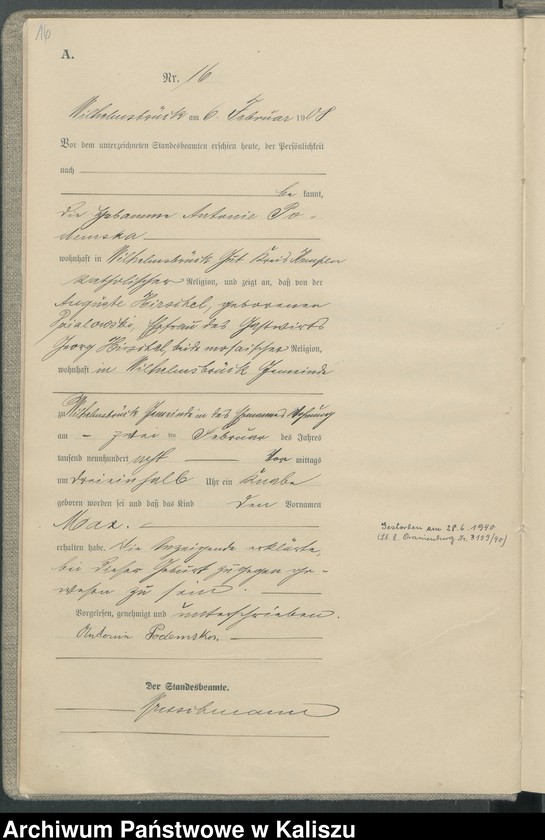 16
A.
Nr. 16
Wilhelmsbrück am 6. Februar 1908
Vor dem unterzeichneten Standesbeamten erschien heute, der Persönlichkeit
nach
be kannt,
die Hebamme Antonie Po-
demska
wohnhaft in Wilhelmsbrück Gut Kreis Kempen
katholischer Religion, und zeigt an, daß von der
Auguste Hirschel, geborenen
Ehefrau des Gastwirts
Georg Hirschel, beide mosaischer Religion,
wohnhaft in Wilhelmsbrück Gemeinde
zu Wilhelmsbrück Gemeinde in des Ehemannes Wohnung
am - zwei ten Februar des Jahres
tausend neunhundert acht Vor mittags
um dreieinhalb Uhr ein Knabe
geboren worden sei und daß das Kind den Vornamen
Max.
erhalten habe. Die Anzeigende erklärte,
bei dieser Geburt zugegen ge-
wesen zu sein.
Vorgelesen, genehmigt und unterschrieben.
Antonie Podemska.
Der Standesbeamte.
Gestorben am 28.6.1940
(St. A. Oranienburg Nr. 3109/40)
Archiwum Państwowe w Kaliszu